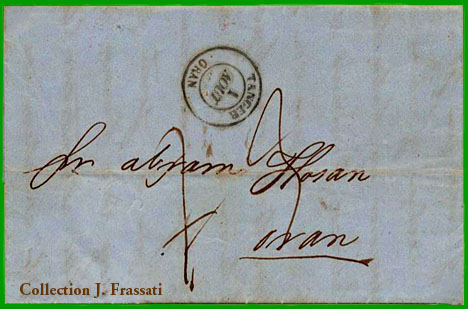 TANGER
ORAN
1
AOUT
Sr abram Hosan
oran
Collection J. Frassati